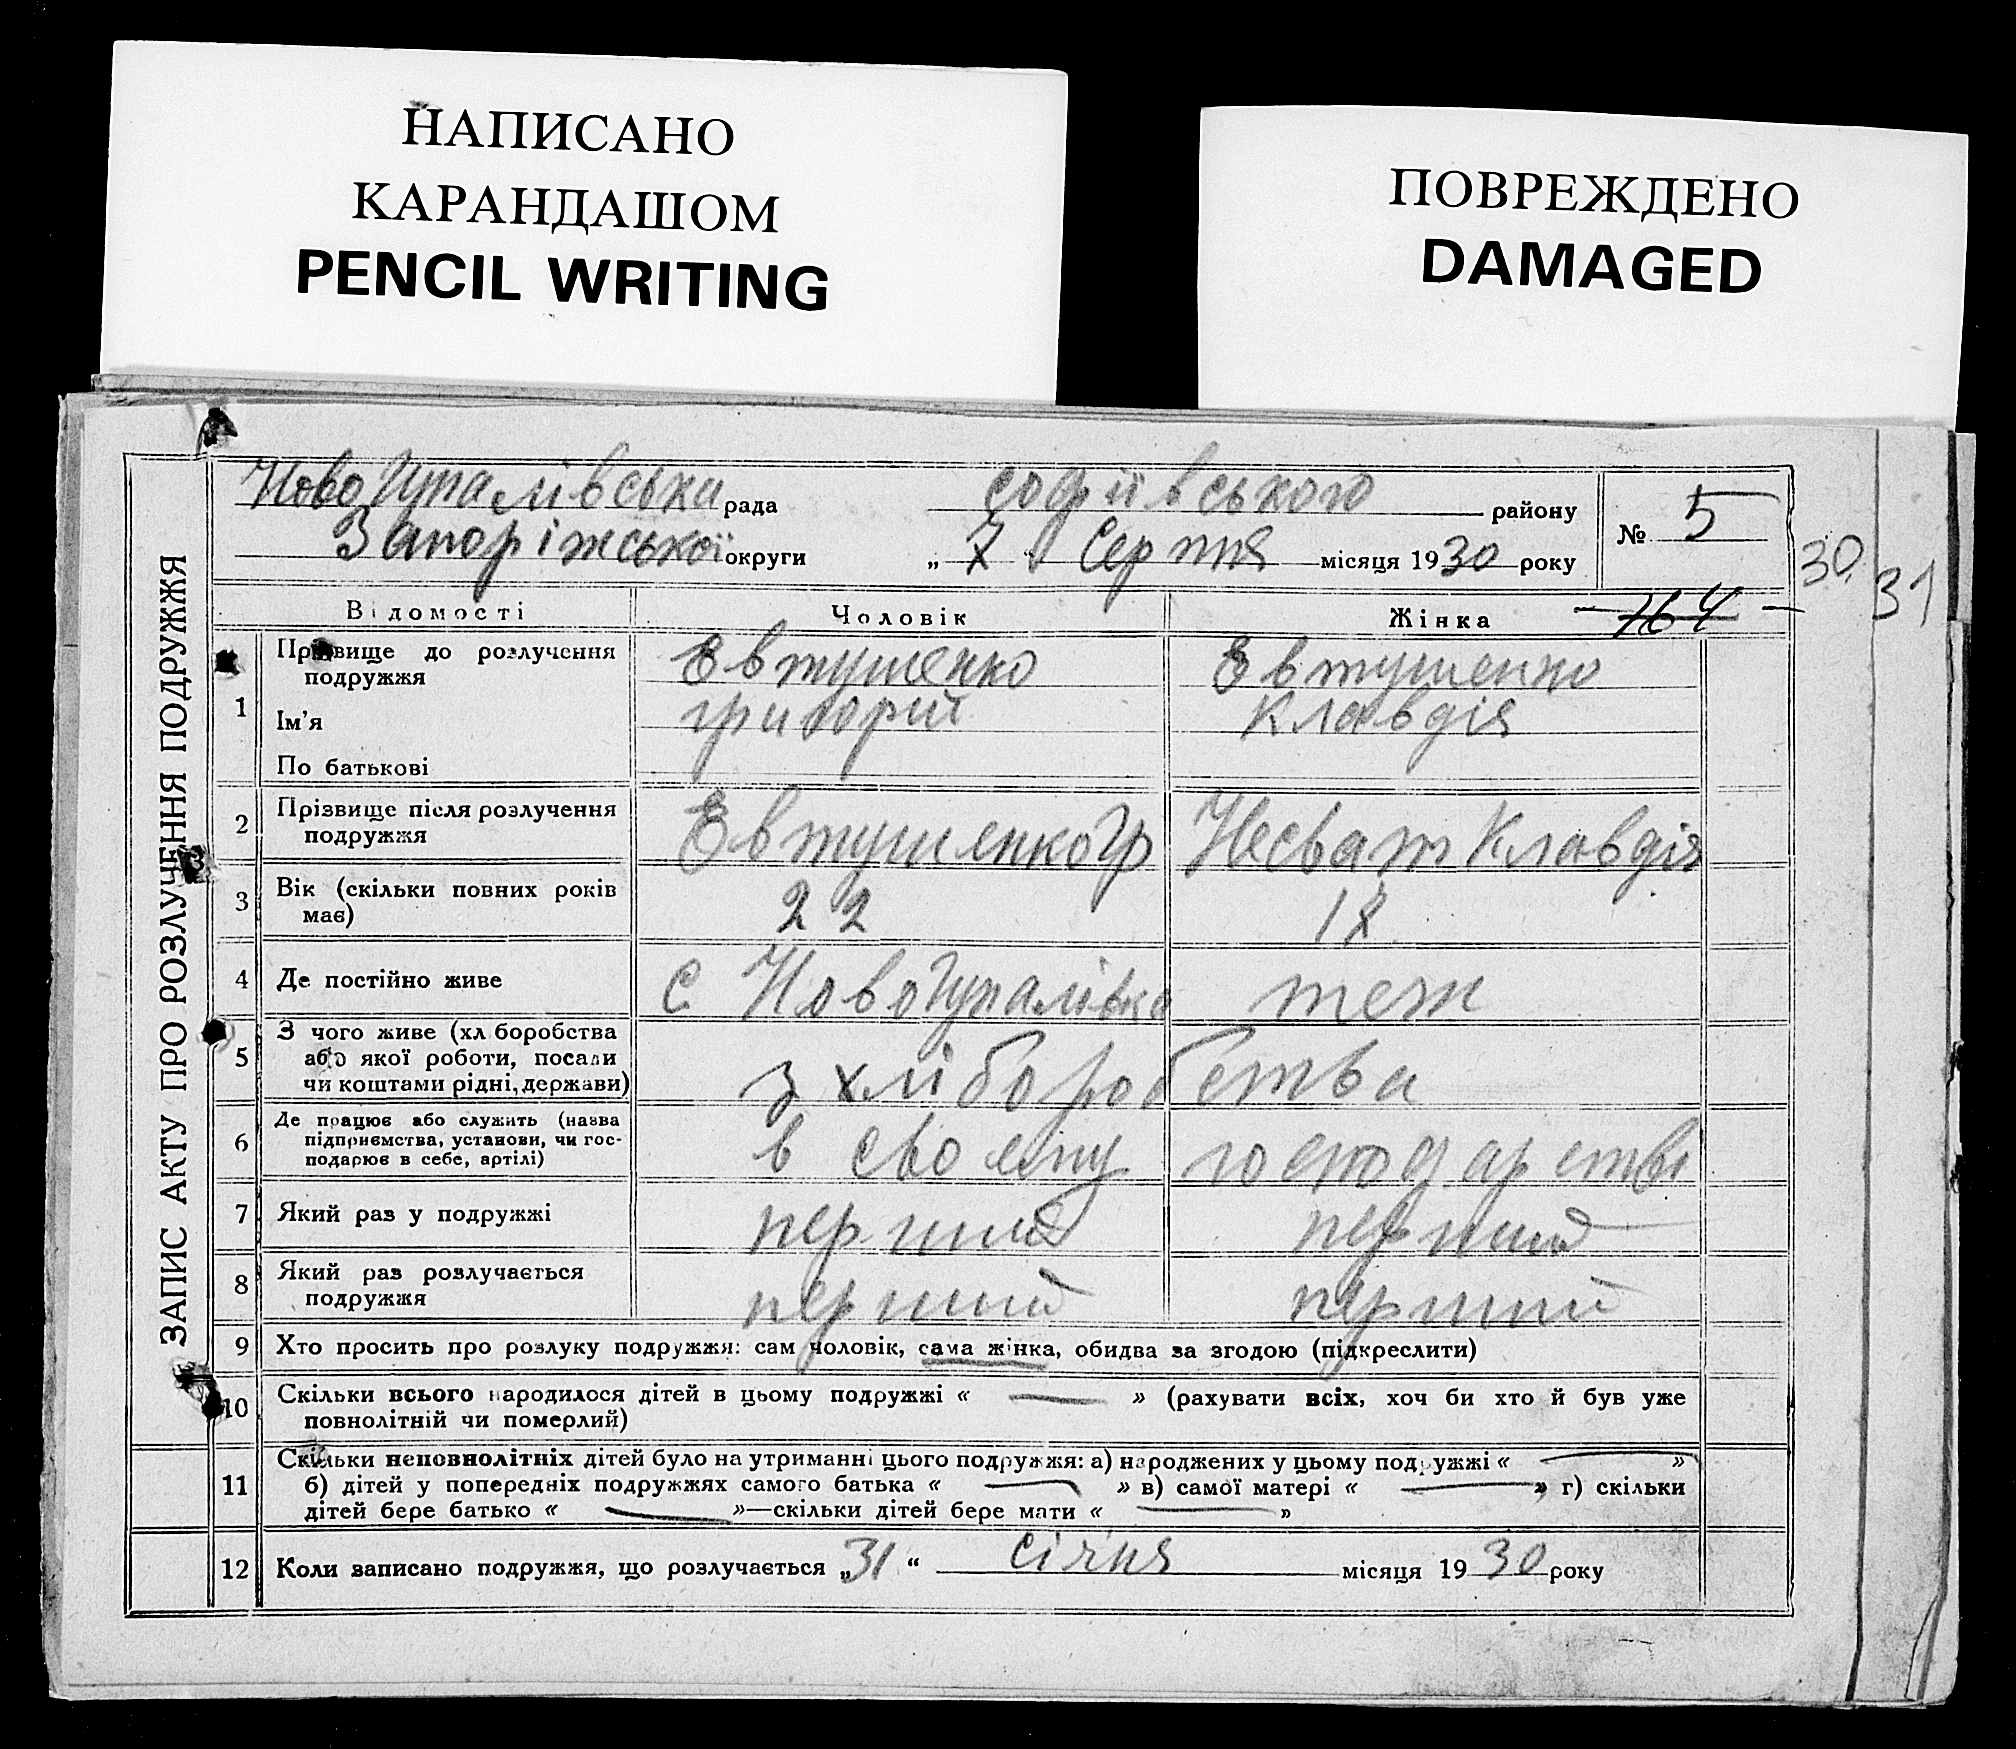 НАПИСАНО
КАРАНДАШОМ
PENCIL WRITING
ПОВРЕЖДЕНО
DAMAGED
ЗАПИС АКТУ ПРО РОЗЛУЧЕННЯ ПОДРУЖЖЯ
НовоГупалівська рада Софіївського району
Запоріжської округи „ 7 “ Серпня місяця 1930 року
№ 5
30 31
Відомості Чоловік Жінка 164
1 Прізвище до розлучення Евтушенко Евтушенко
подружжя
Ім’я Григорий Клавдія
По батькові
2 Прізвище після розлучення Евтушенко Гр Несват Клавдія
подружжя
3 Вік (скільки повних років 22 18
має)
4 Де постійно живе С НовоГупалівка теж
5 З чого живе (хліборобства
або якої роботи, посади з хліборобства
чи коштами рідні, держави)
6 Де працює або служить (назва
підприємства, установи, чи гос- в своему господарстві
подарює в себе, артілі)
7 Який раз у подружжі перший перший
8 Який раз розлучається перший перший
подружжя
9 Хто просить про розлуку подружжя: сам чоловік, сама жінка, обидва за згодою (підкреслити)
10 Скільки всього народилося дітей в цьому подружжі « — » (рахувати всіх, хоч би хто й був уже
повнолітній чи померлий)
11 Скільки неповнолітніх дітей було на утриманні цього подружжя: а) народжених у цьому подружжі « — »
б) дітей у попередніх подружжях самого батька « — » в) самої матері « — » г) скільки
дітей бере батько « — »—скільки дітей бере мати « — »
12 Коли записано подружжя, що розлучається „31“ Січня місяця 1930 року